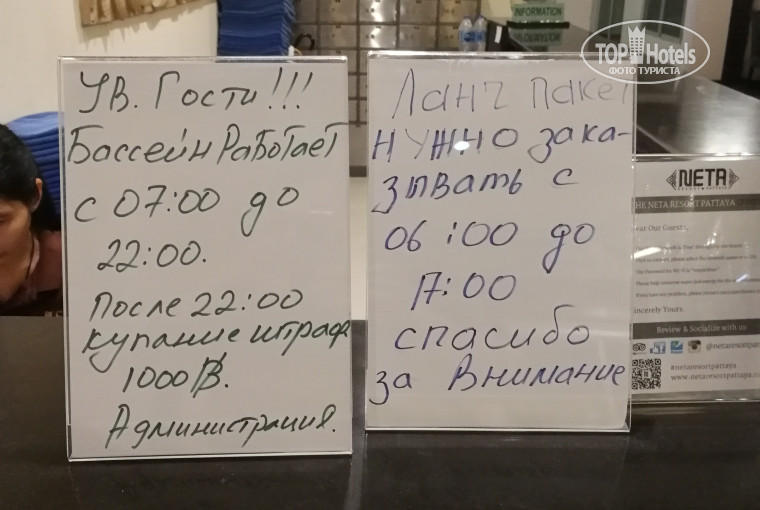 УВ. Гости!!!
Бассейн Работает
с 07:00 до
22:00.
После 22:00
купание штраф
1000฿.
Администрация.
Ланч пакет
нужно зака-
зывать с
06:00 до
17:00
спасибо
за внимание
INFORMATION
TOP Hotels
ФОТО ТУРИСТА
NETA
THE NETA RESORT PATTAYA
Dear Our Guests,
Sincerely Yours.
Review & Socialize with us
@netaresortpat
#netaresortpattaya
www.netaresortpattaya